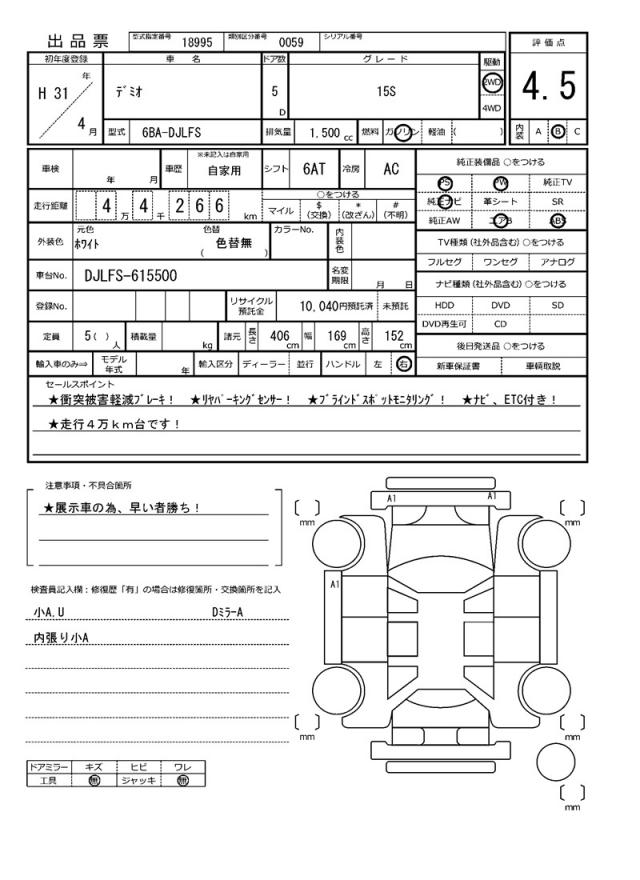 出品票 型式指定番号 18995 類別区分番号 0059 シリアル番号
評価点
4.5
初年度登録 車名 ドア数 グレード 駆動
H 31 年 デミオ 5 D 15S 2WD
4WD
4 月 型式 6BA-DJLFS 排気量 1.500 cc 燃料 ガソリン 軽油 ( ) 内装 A B C
車検 年 月 車歴 ※未記入は自家用 自家用 シフト 6AT 冷房 AC
走行距離 4 万 4 千 2 6 6 km
○をつける
マイル $ (交換) * (改ざん) # (不明)
外装色 元色 ホワイト 色替 ( 色替無 ) カラーNo. 内装色
車台No. DJLFS-615500 名変期限 月 日
登録No. リサイクル預託金 10,040円預託済 未預託
定員 5( ) 人 積載量 kg 諸元 長さ 406 cm 幅 169 cm 高さ 152 cm
輸入車のみ⇒ モデル年式 年 輸入区分 ディーラー 並行 ハンドル 左 右
純正装備品 ○をつける
PS PW 純正TV
純正ナビ 革シート SR
純正AW エアB ABS
TV種類 (社外品含む) ○をつける
フルセグ ワンセグ アナログ
ナビ種類 (社外品含む) ○をつける
HDD DVD SD
DVD再生可 CD
後日発送品 ○をつける
新車保証書 車輌取説
セールスポイント
★衝突被害軽減ブレーキ! ★リヤパーキングセンサー! ★ブラインドスポットモニタリング! ★ナビ、ETC付き!
★走行4万km台です!
注意事項・不具合箇所
★展示車の為、早い者勝ち!
検査員記入欄:修復歴「有」の場合は修復箇所・交換箇所を記入
小A.U DミラーA
内張り小A
ドアミラー キズ ヒビ ワレ
工具 無 ジャッキ 無
A1 A1
A1
mm mm
mm mm
mm